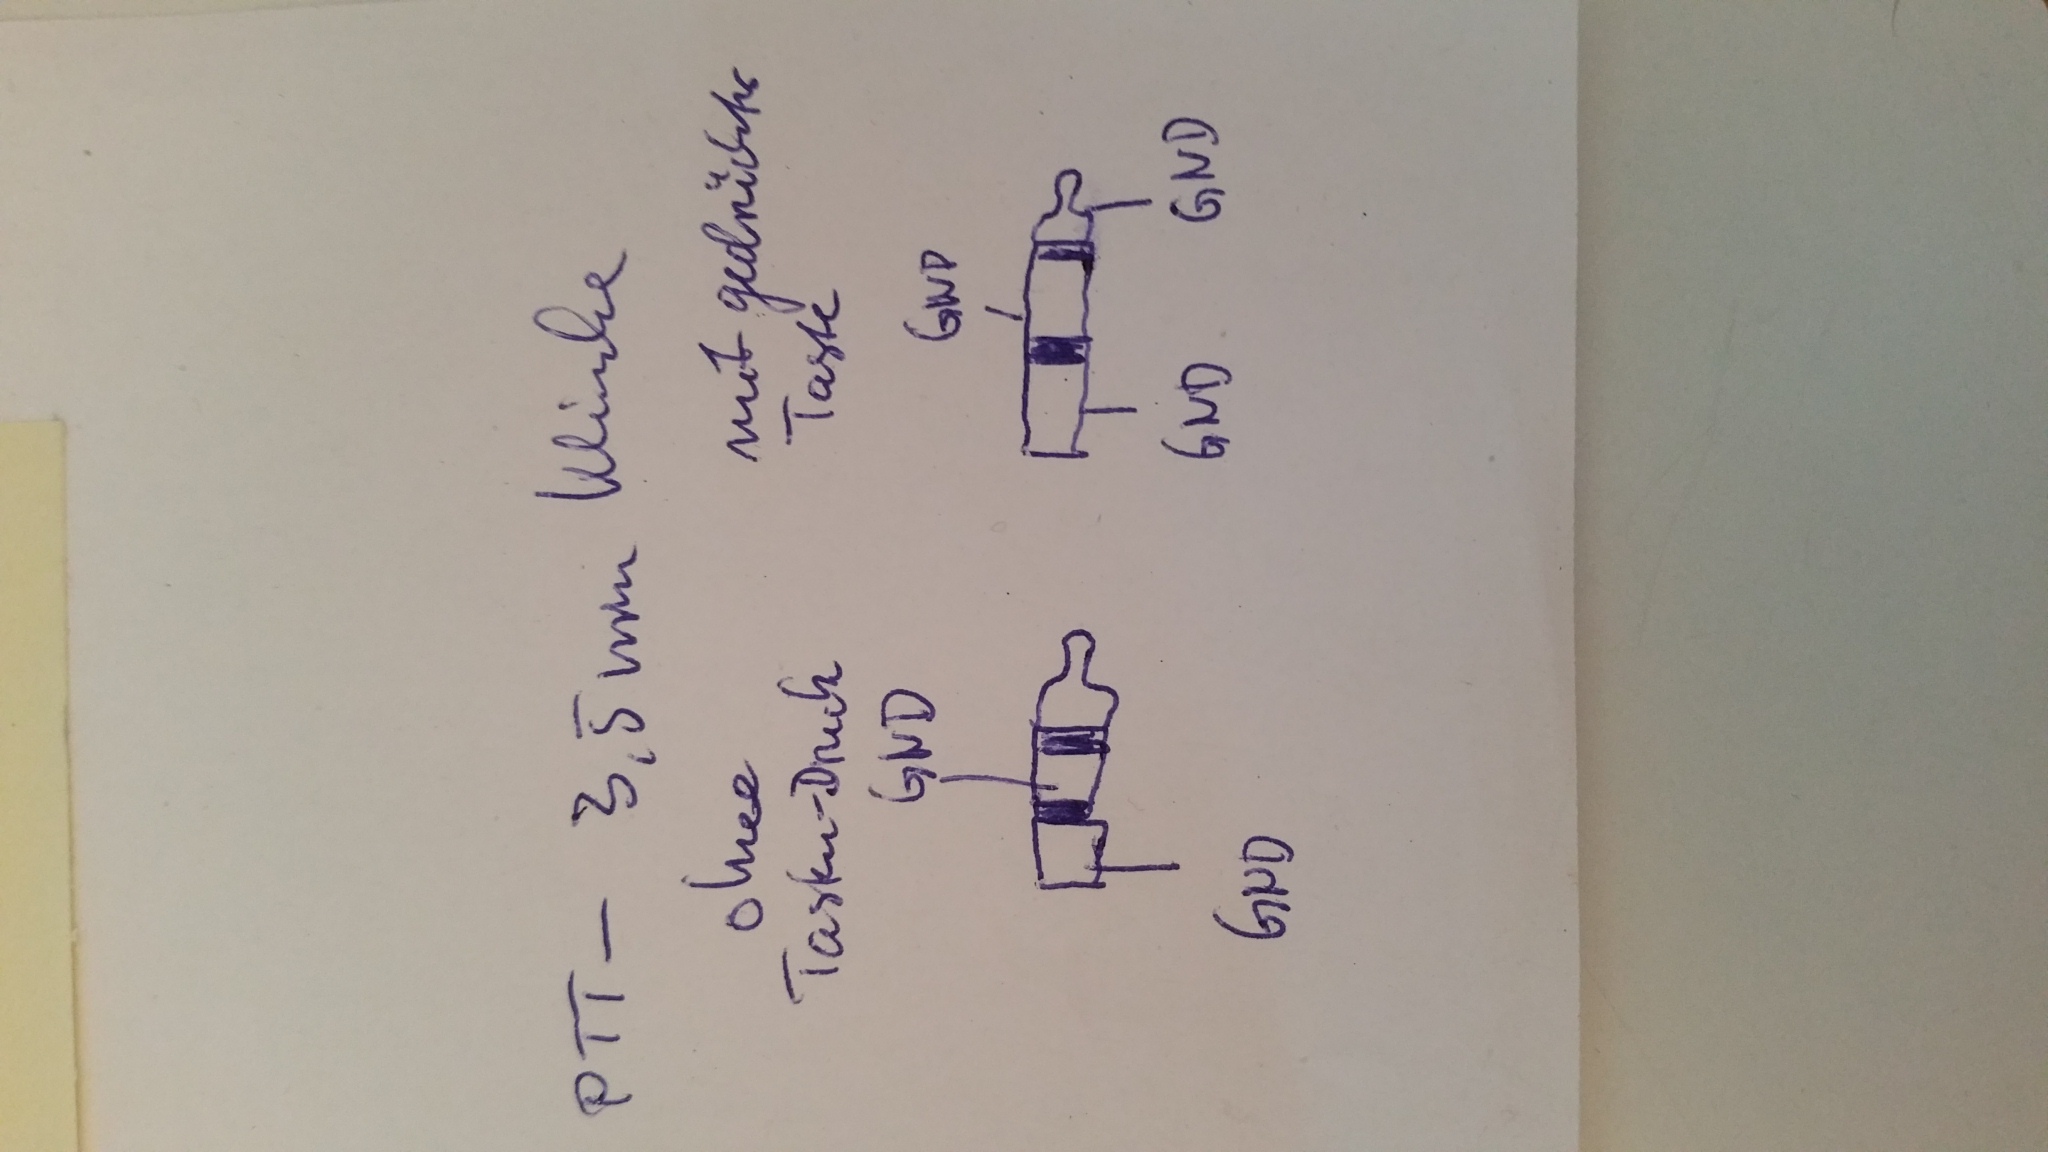 PTT - 3,5mm Klinke
ohne
Tasten-Druck
mit gedrückter
Taste
GND
GND
GND
GND
GND